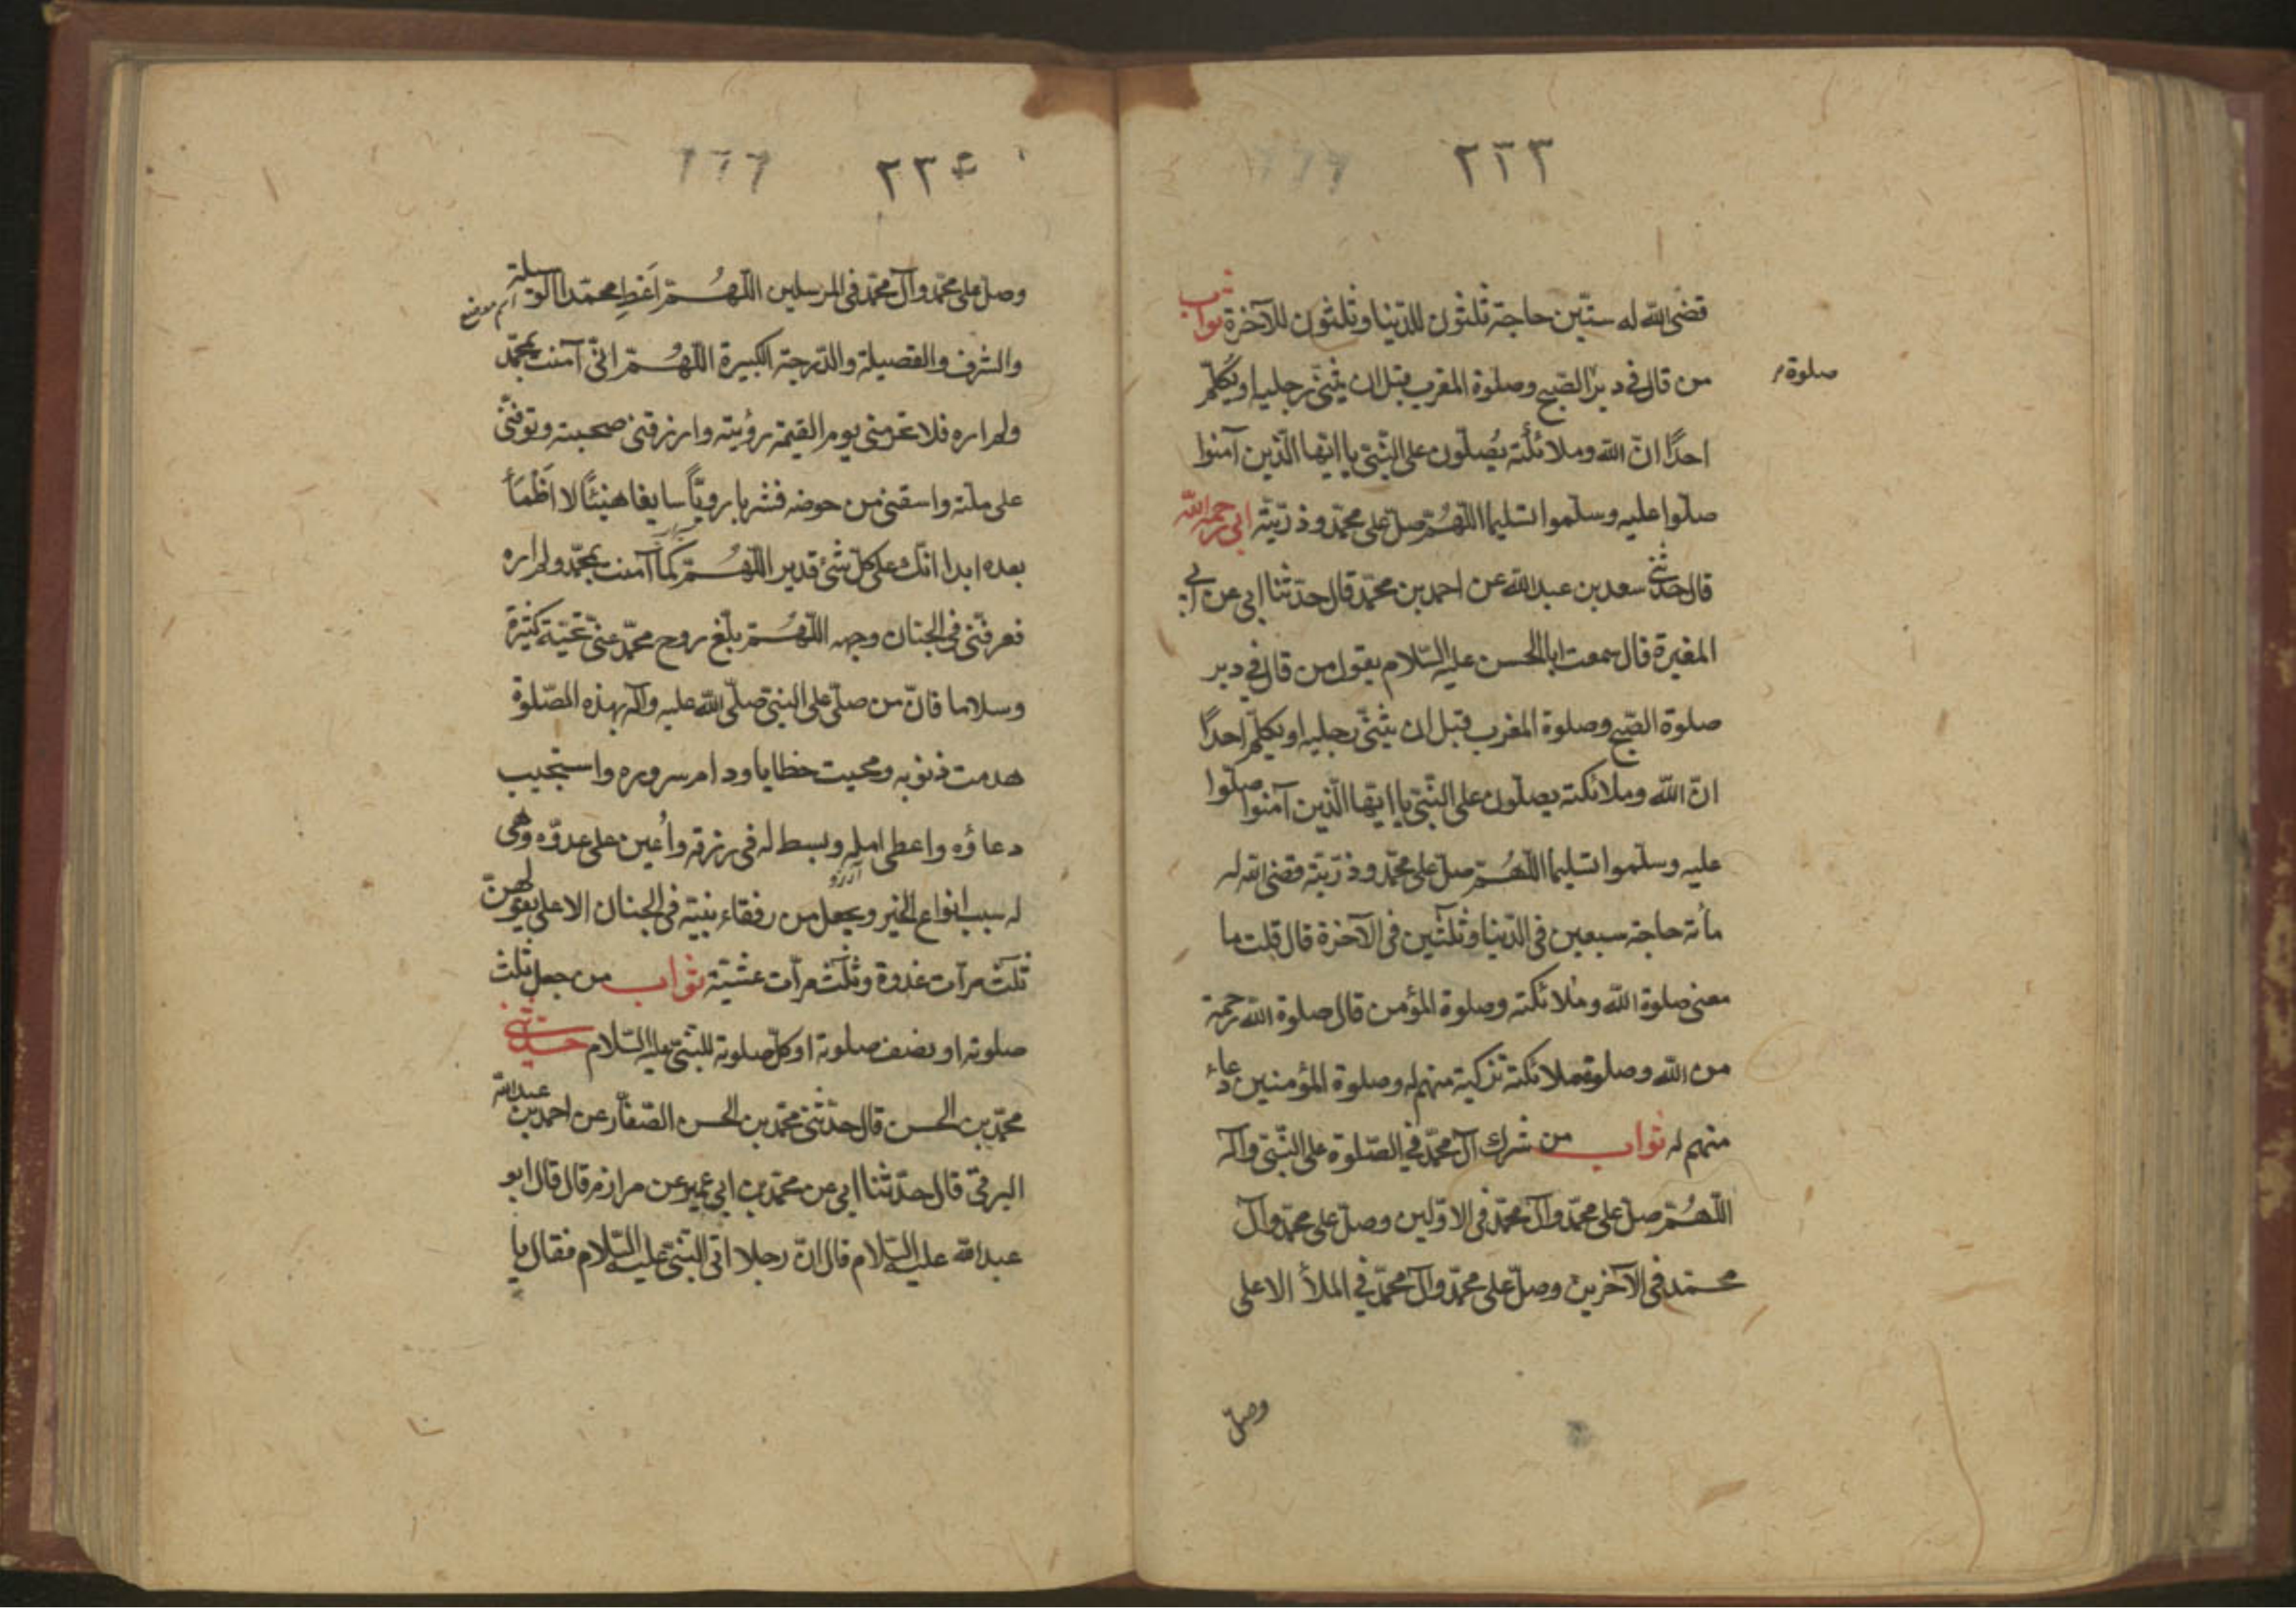 ٢٣٣
قضى الله له ستّين حاجة ثلثون للدّنيا وثلثون للآخرة ثواب
من قال فى دبر الصّبح وصلوة المغرب قبل ان يثنى رجليه او يكلّم
صلوة
احدًا انّ الله وملائكته يُصلّون على النّبىّ يا ايّها الّذين آمنوا
صلّوا عليه وسلّموا تسليما اللّهُمّ صلّ على محمّد وذرّيّته ابى رحمه الله
قال حدّثنى سعد بن عبدالله عن احمد بن محمّد قال حدّثنا ابى عن ابى
المغيرة قال سمعت ابا الحسن عليه السّلام يقول من قال فى دبر
صلوة الصّبح وصلوة المغرب قبل ان يثنى رجليه او يكلّم احدًا
انّ الله وملائكته يصلّون على النّبىّ يا ايّها الّذين آمنوا صلّوا
عليه وسلّموا تسليما اللّهُمّ صلّ على محمّد وذرّيّته قضى الله له
مأئة حاجة سبعين فى الدّنيا وثلثين فى الآخرة قال قلت ما
معنى صلوة الله وملائكته وصلوة المؤمن قال صلوة الله رحمة
من الله وصلوة ملائكته تزكية منهم له وصلوة المؤمنين دعاء
منهم له ثواب من شرك آل محمّد فى الصّلوة على النّبىّ وآله
اللّهُمّ صلّ على محمّد وآل محمّد فى الاوّلين وصلّ على محمّد وآل
محمّد فى الآخرين وصلّ على محمّد وآل محمّد فى الملأ الاعلى
وصلّ
٢٣٤
وصلّ على محمّد وآل محمّد فى المرسلين اللّهُمّ اَعْطِ محمّدا الوسيلة
والشرف والفضيلة والدّرجة الكبيرة اللّهُمّ انّى آمنت بمحمّد
ولم اره فلا تحرمنى يوم القيمة رؤيته وارزقنى صحبته وتوفّنى
على ملّته واسقنى من حوضه مشربا رويًّا سايغا هنيئًا لا اظْمَأ
بعده ابدا انّك على كلّ شىء قدير اللّهُمّ كما آمنت بمحمّد ولم اره
فعرفنى فى الجنان وجهه اللّهُمّ بلّغ روح محمّد عنّى تحيّة كثيرة
وسلاما فانّ من صلّى على النبىّ صلّى الله عليه وآله بهذه الصّلوة
هدمت ذنوبه ومحيت خطاياه ودام سروره واستجيب
دعاؤه واعطى امله وبسط له فى رزقه واُعين على عدوّه وهى
آرزو
له سبب انواع الخير ويجعل من رفقاء نبيّه فى الجنان الاعلى يقولهنّ
ثلث مرّات غدوة وثلث مرّات عشيّة ثواب من جعل ثلث
صلوته او نصف صلوته او كلّ صلوته للنّبىّ عليه السّلام حدّثنى
محمّد بن الحسن قال حدّثنى محمّد بن الحسن الصّفّار عن احمد بن عبدالله
البرقىّ قال حدّثنا ابى عن محمّد بن ابى عمير عن مرازم قال قال ابو
عبدالله عليه السّلام قال انّ رجلا اتى النّبىّ عليه السّلام فقال يا